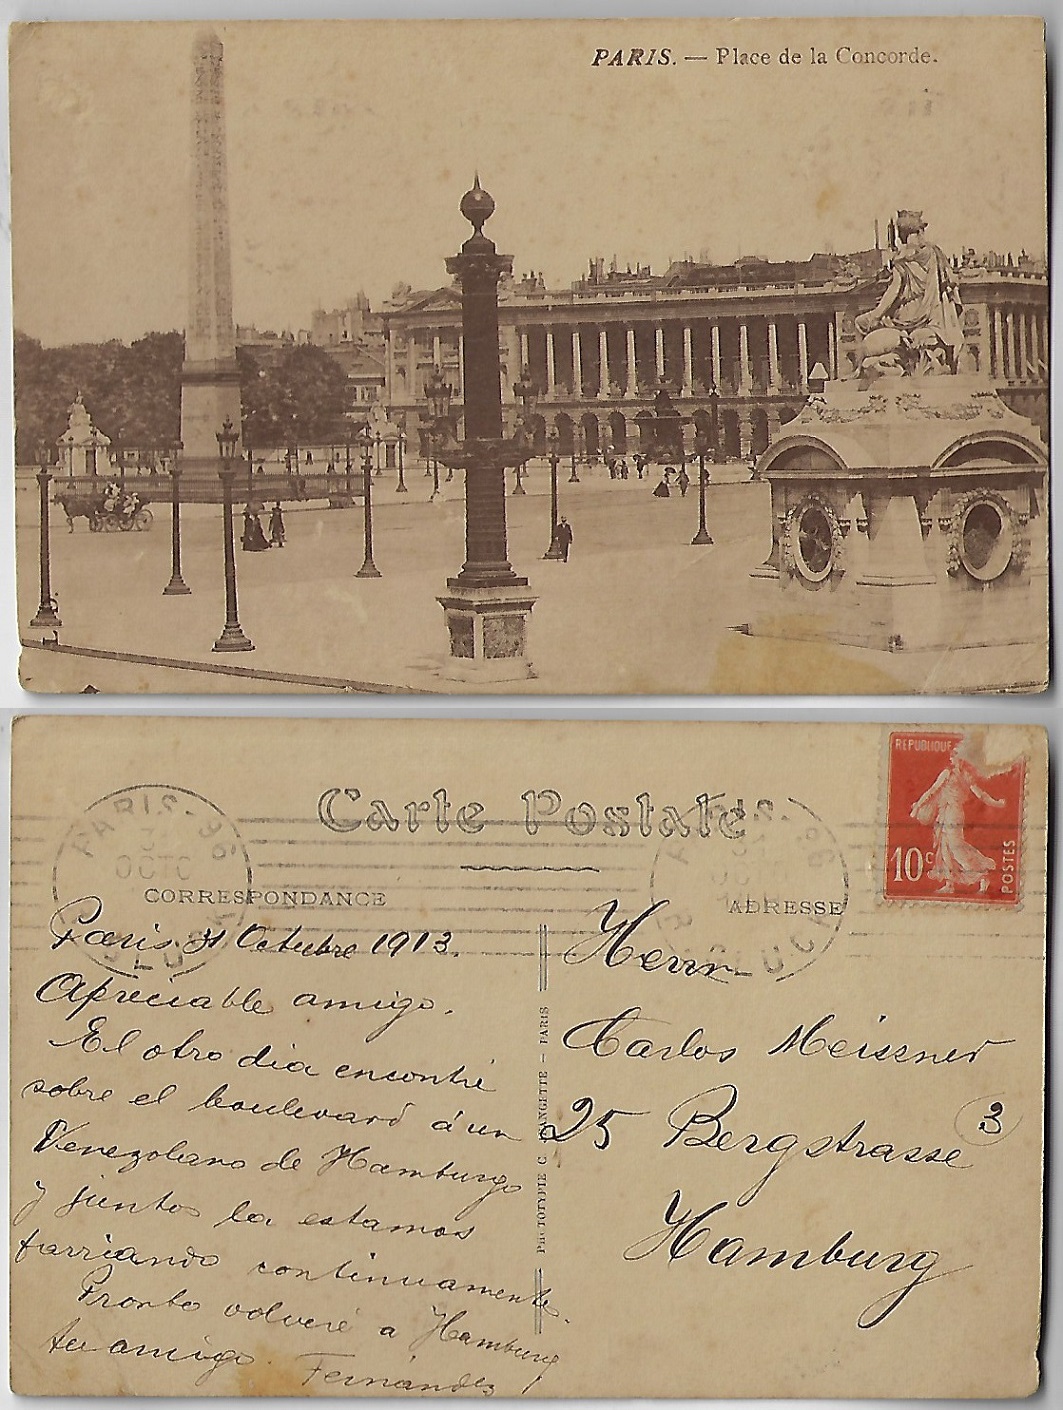 PARIS. — Place de la Concorde.
Carte Postale
CORRESPONDANCE
ADRESSE
REPUBLIQUE
10c
POSTES
PARIS-96
3
OCTO
GLUCK
Paris 31 Octubre 1913.
Apreciable amigo.
El otro dia encontré
sobre el boulevard á un
Venezolano de Hamburgo
y juntos la estamos
farriando continuamente.
Pronto volveré a Hamburg
tu amigo Fernández
PHOTOTYPIE C. PARIS
Herrn
Carlos Meissner
25 Bergstrasse
3
Hamburg